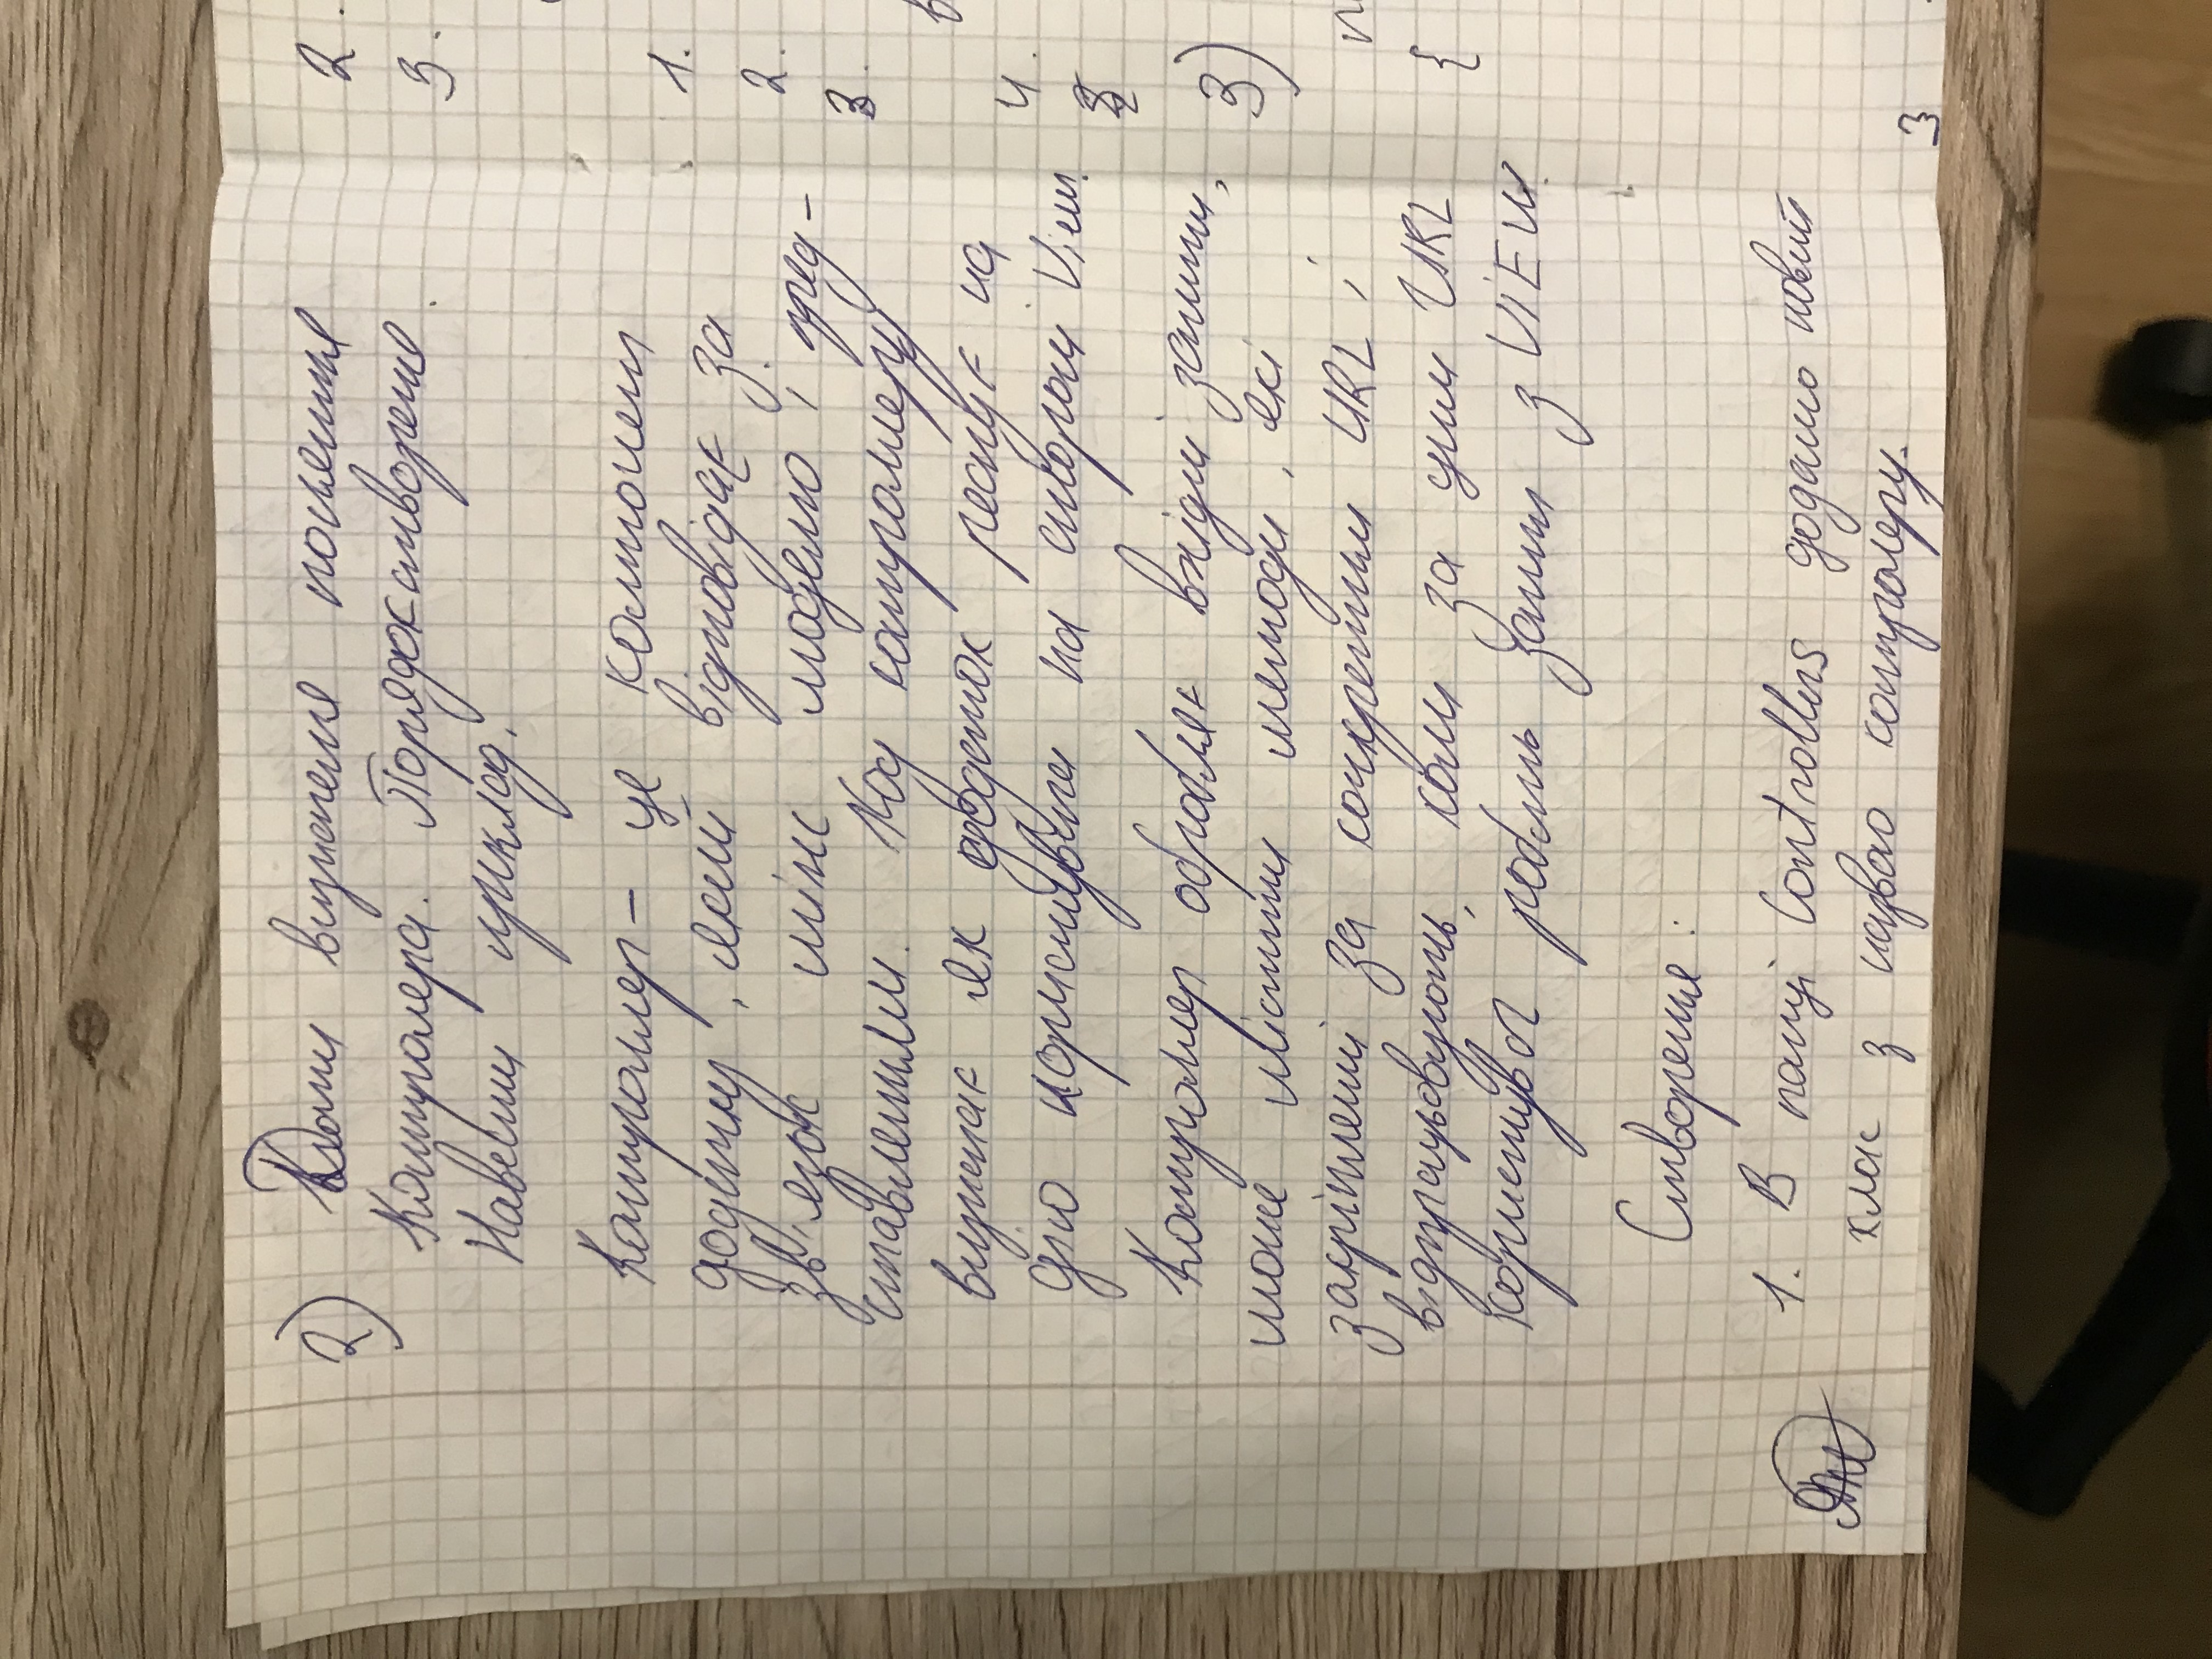 2) Дати визначення поняття
Контролера. Порядок створення.
Навести приклад.
Контроллер – це компонент
додатку, який відповідає за
зв'язок між моделлю і пред-
ставленням. Код контроллеру
визначає як додаток реагує на
дію користувача на стороні View.
Контроллер обробляє вхідні запити,
може містити методи, які
закріплені за конкретним URL і
відпрацьовують, коли за цим URL
користувач робить запит з VIEW.
Створення:
1. В папці Controllers додамо новий
клас з назвою контролеру.
2.
3.
1.
2.
3.
в
4.
3)
{
3